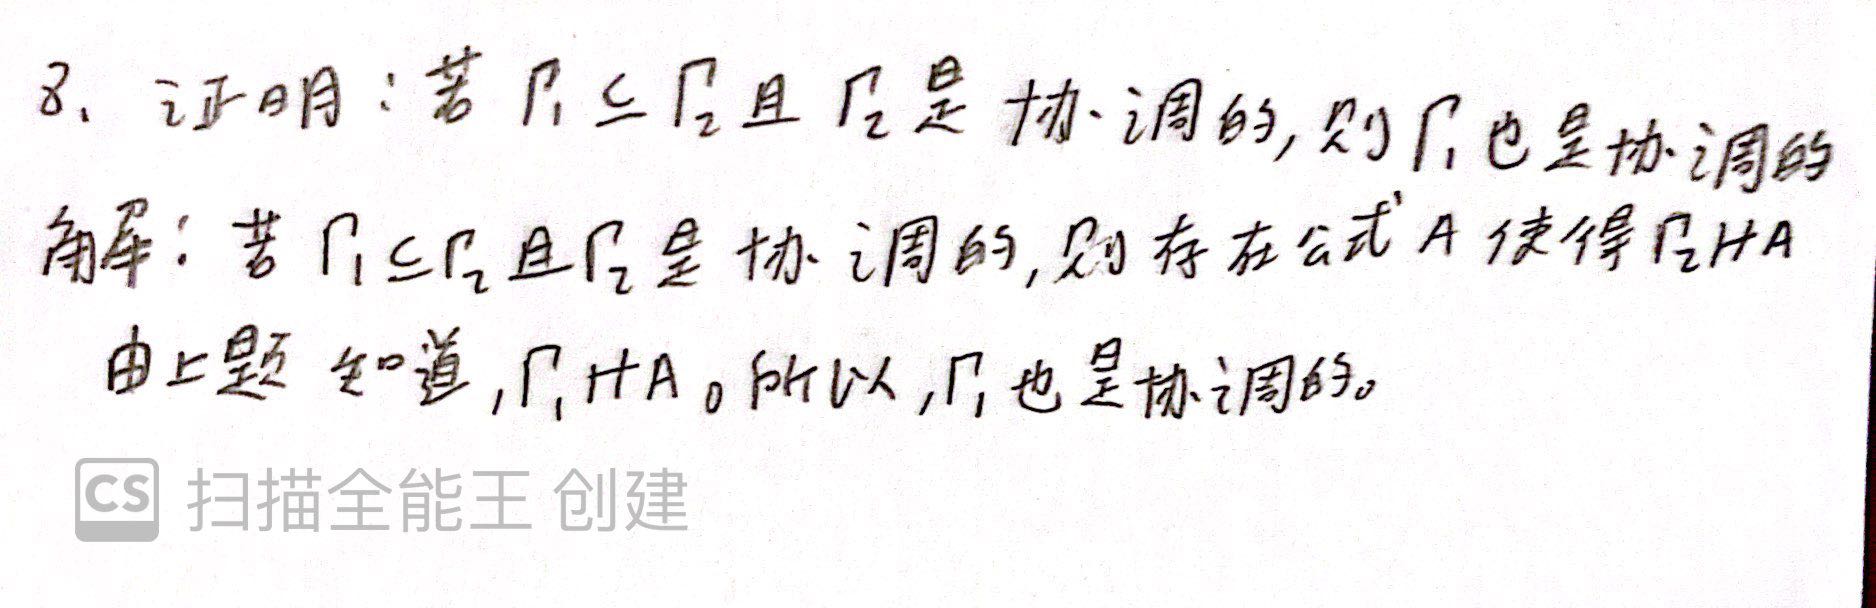 8. 证明:若 Γ₁ ⊆ Γ₂ 且 Γ₂ 是协调的,则 Γ₁ 也是协调的
解:若 Γ₁ ⊆ Γ₂ 且 Γ₂ 是协调的,则存在公式 A 使得 Γ₂ ⊬ A
由上题知道,Γ₁ ⊬ A。所以,Γ₁ 也是协调的。
CS 扫描全能王 创建